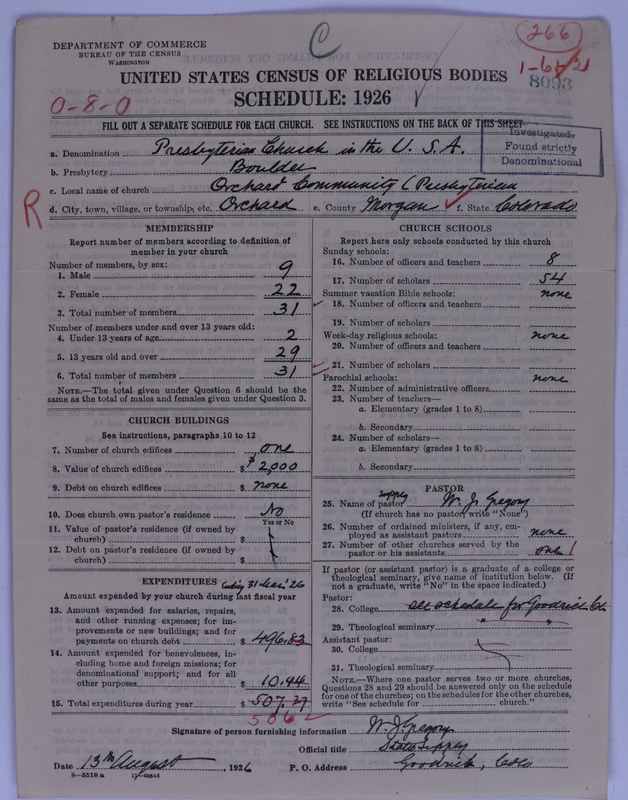 DEPARTMENT OF COMMERCE
BUREAU OF THE CENSUS
WASHINGTON
C
266
1-6
8093
UNITED STATES CENSUS OF RELIGIOUS BODIES
SCHEDULE: 1926
0-8-0
FILL OUT A SEPARATE SCHEDULE FOR EACH CHURCH. SEE INSTRUCTIONS ON THE BACK OF THIS SHEET
Investigated:
Found strictly
Denominational
a. Denomination Presbyterian Church in the U.S.A.
b. Presbytery Boulder
c. Local name of church Orchard Community (Presbyterian
R
d. City, town, village, or township, etc. Orchard e. County Morgan f. State Colorado
MEMBERSHIP
Report number of members according to definition of
member in your church
Number of members, by sex:
1. Male 9
2. Female 22
3. Total number of members 31
Number of members under and over 13 years old:
4. Under 13 years of age 2
5. 13 years old and over 29
6. Total number of members 31
NOTE.—The total given under Question 6 should be the
same as the total of males and females given under Question 3.
CHURCH BUILDINGS
See instructions, paragraphs 10 to 12
7. Number of church edifices one
8. Value of church edifices $ $2,000
9. Debt on church edifices $ none
10. Does church own pastor's residence No
Yes or No
11. Value of pastor's residence (if owned by
church) $
12. Debt on pastor's residence (if owned by
church) $
EXPENDITURES ending 31 Mar. 26
Amount expended by your church during last fiscal year
13. Amount expended for salaries, repairs,
and other running expenses; for im-
provements or new buildings; and for
payments on church debt $ 496.83
14. Amount expended for benevolences, in-
cluding home and foreign missions; for
denominational support; and for all
other purposes $ 10.44
15. Total expenditures during year $ 507.27
506
CHURCH SCHOOLS
Report here only schools conducted by this church
Sunday schools:
16. Number of officers and teachers 8
17. Number of scholars 54
Summer vacation Bible schools: none
18. Number of officers and teachers
19. Number of scholars
Week-day religious schools: none
20. Number of officers and teachers
21. Number of scholars
Parochial schools: none
22. Number of administrative officers
23. Number of teachers—
a. Elementary (grades 1 to 8)
b. Secondary
24. Number of scholars—
a. Elementary (grades 1 to 8)
b. Secondary
PASTOR
supply
25. Name of pastor W. J. Gregory
(If church has no pastor, write "None")
26. Number of ordained ministers, if any, em-
ployed as assistant pastors none
27. Number of other churches served by the
pastor or his assistants one 1
If pastor (or assistant pastor) is a graduate of a college or
theological seminary, give name of institution below. (If
not a graduate, write "No" in the space indicated.)
Pastor:
28. College see schedule for Goodrich Ch
29. Theological seminary " "
Assistant pastor:
30. College
31. Theological seminary
NOTE.—Where one pastor serves two or more churches,
Questions 28 and 29 should be answered only on the schedule
for one of the churches; on the schedules for the other churches,
write "See schedule for church."
Signature of person furnishing information W. J. Gregory
Official title Stated Supply
Date 13th August, 1926 P. O. Address Goodrich, Colo
8—5518 a